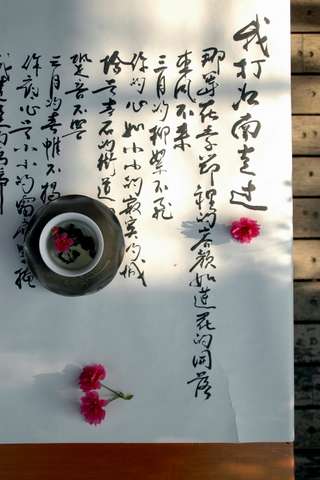 我打江南走過
那等在季節裡的容顏如蓮花的開落
東風不來
三月的柳絮不飛
你的心如小小的寂寞的城
恰若青石的街道
跫音不響
三月的春帷不揭
你的心是小小的窗扉緊掩